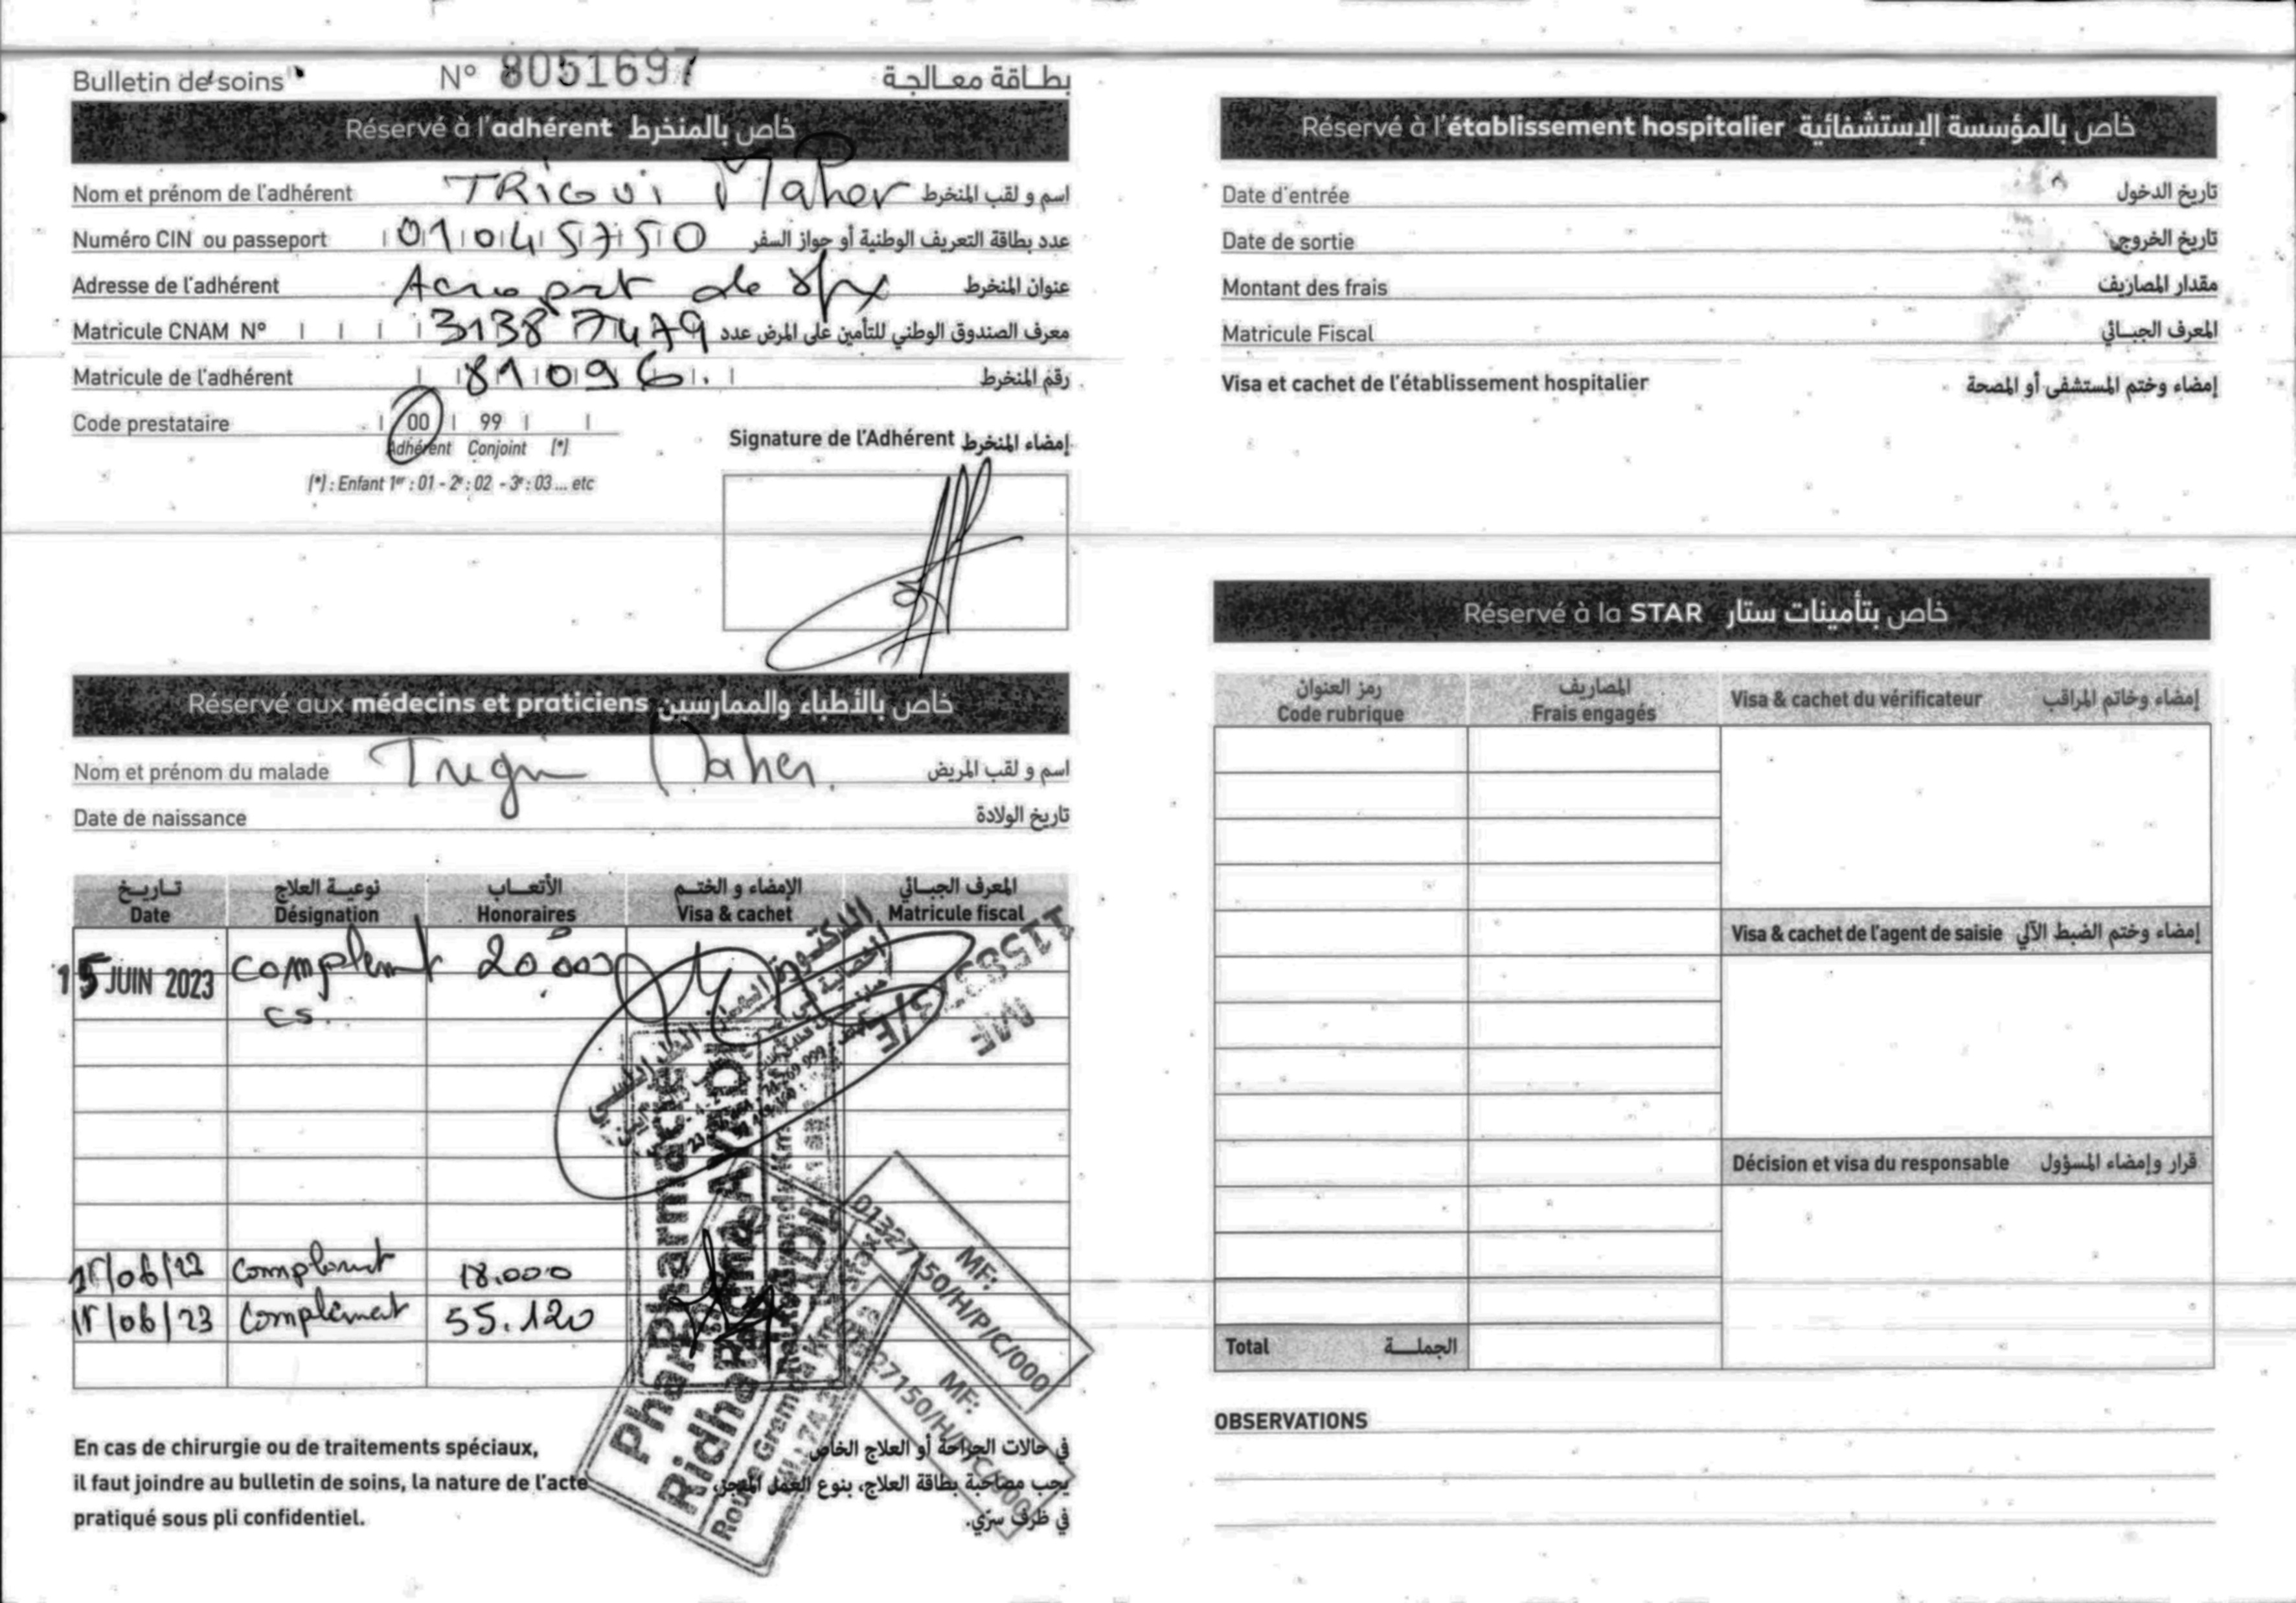 Bulletin de soins N° 8051697 بطاقة معالجة
Réservé à l'adhérent خاص بالمنخرط
Nom et prénom de l'adhérent TRIGUI Maher اسم و لقب المنخرط
Numéro CIN ou passeport 01045750 عدد بطاقة التعريف الوطنية أو جواز السفر
Adresse de l'adhérent Aeroport de Sfx عنوان المنخرط
Matricule CNAM N° 31387479 معرف الصندوق الوطني للتأمين على المرض عدد
Matricule de l'adhérent 81096. رقم المنخرط
Code prestataire 00 99
Adhérent Conjoint (*)
(*) : Enfant 1er : 01 - 2e : 02 - 3e : 03 ... etc
Signature de l'Adhérent إمضاء المنخرط
Réservé aux médecins et praticiens خاص بالأطباء والممارسين
Nom et prénom du malade Trigui Maher. اسم و لقب المريض
Date de naissance تاريخ الولادة
تـاريـخ نوعيـة العلاج الأتعـاب الإمضاء و الختـم المعرف الجبـائي
Date Désignation Honoraires Visa & cachet Matricule fiscal
15 JUIN 2023 complement 20.000
cs.
MF
15/06/23 Complement 18.000
15/06/23 Complément 55.120
Pharmacie
Ridha
MF:
01327150/H/P/C/000
MF:
En cas de chirurgie ou de traitements spéciaux,
il faut joindre au bulletin de soins, la nature de l'acte
pratiqué sous pli confidentiel.
في حالات الجراحة أو العلاج الخاص
يجب مصاحبة بطاقة العلاج، بنوع العمل المنجز،
في ظرف سرّي.
Réservé à l'établissement hospitalier خاص بالمؤسسة الإستشفائية
Date d'entrée تاريخ الدخول
Date de sortie تاريخ الخروج
Montant des frais مقدار المصاريف
Matricule Fiscal المعرف الجبـائي
Visa et cachet de l'établissement hospitalier إمضاء وختم المستشفى أو المصحة
Réservé à la STAR خاص بتأمينات ستار
رمز العنوان المصاريف
Code rubrique Frais engagés Visa & cachet du vérificateur إمضاء وخاتم المراقب
Visa & cachet de l'agent de saisie إمضاء وختم الضبط الآلي
Décision et visa du responsable قرار وإمضاء المسؤول
Total الجملـة
OBSERVATIONS